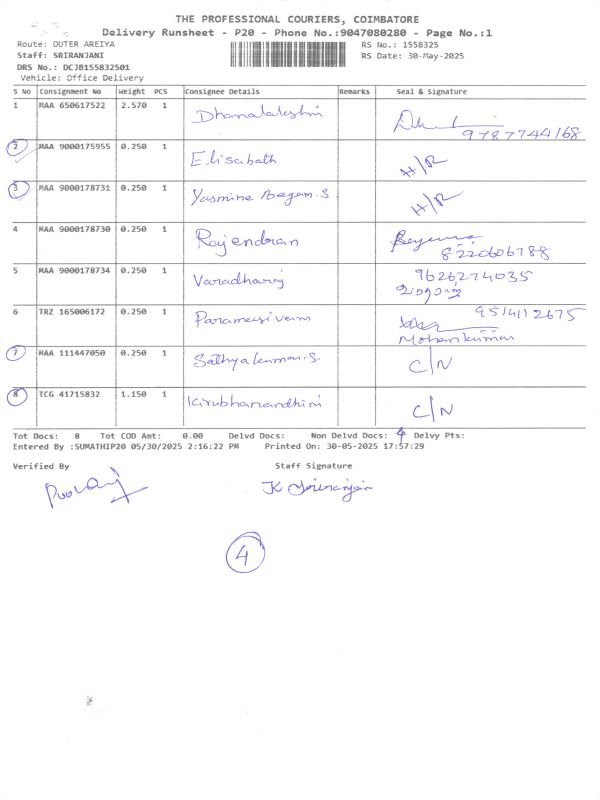 THE PROFESSIONAL COURIERS, COIMBATORE
Delivery Runsheet - P20 - Phone No.:9047080280 - Page No.:1
Route: OUTER AREIYA RS No.: 1558325
Staff: SRIRANJANI RS Date: 30-May-2025
DRS No.: DCJB155832501
Vehicle: Office Delivery
S No Consignment No Weight PCS Consignee Details Remarks Seal & Signature
1 MAA 650617522 2.570 1 Dhanalakshmi
9787744168
2 MAA 9000175955 0.250 1 Elisabath H/R
3 MAA 9000178731 0.250 1 Yasmine Begam.S H/R
4 MAA 9000178730 0.250 1 Rajendran
8220606788
5 MAA 9000178734 0.250 1 Varadharaj 9626274035
6 TRZ 165006172 0.250 1 Paramasivam 9514112675
Mohankumar
7 MAA 111447050 0.250 1 Sathyakumar.S. C/N
8 TCG 41715832 1.150 1 Kirubhanandhini C/N
Tot Docs: 8 Tot COD Amt: 0.00 Delvd Docs: Non Delvd Docs: 4 Delvy Pts:
Entered By :SUMATHIP20 05/30/2025 2:16:22 PM Printed On: 30-05-2025 17:57:29
Verified By Staff Signature
4